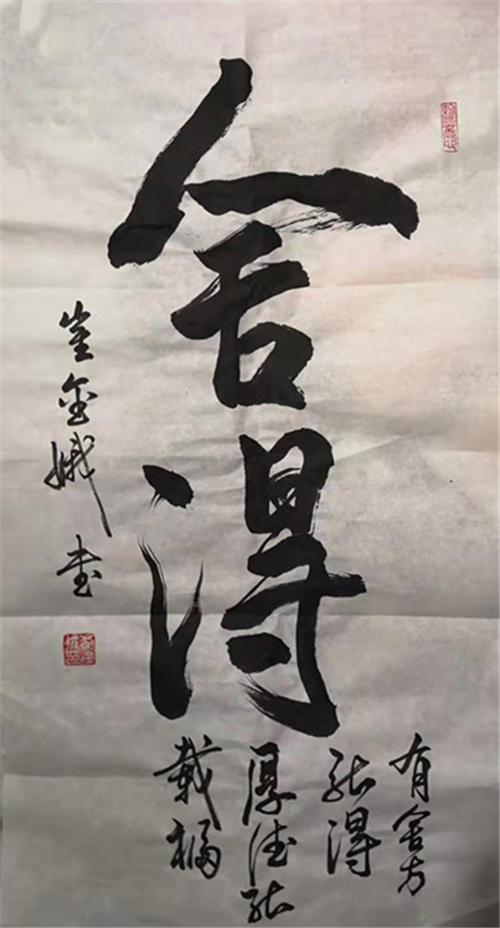 舍得
有舍方
能得
厚德能
載福
崔金娥 書